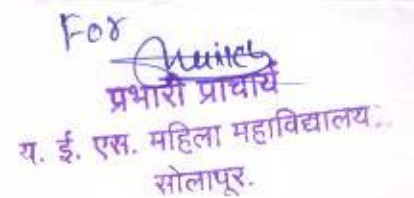 For
प्रभारी प्राचार्य
य. ई. एस. महिला महाविद्यालय.
सोलापूर.